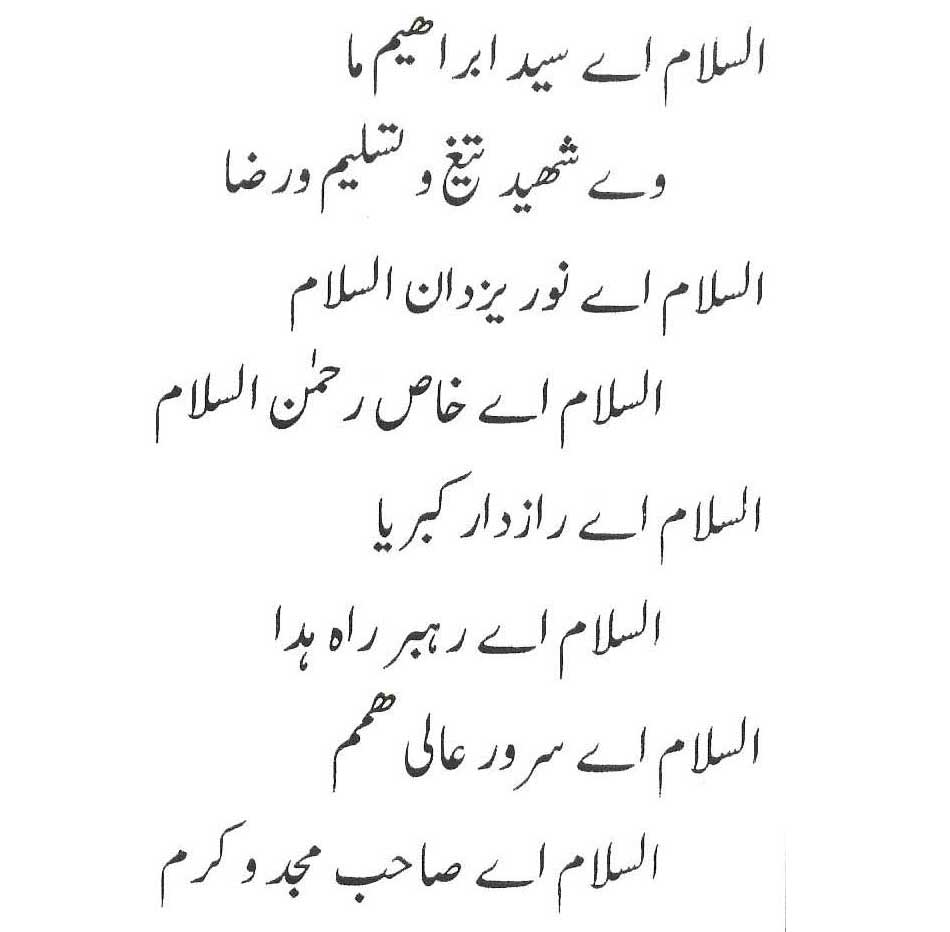 السلام اے سید ابراھیم ما
وے شھید تیغ و تسلیم ورضا
السلام اے نور یزدان السلام
السلام اے خاص رحمٰن السلام
السلام اے رازدار کبریا
السلام اے رہبر راہ ہدا
السلام اے سرور عالی ھمم
السلام اے صاحب مجد و کرم